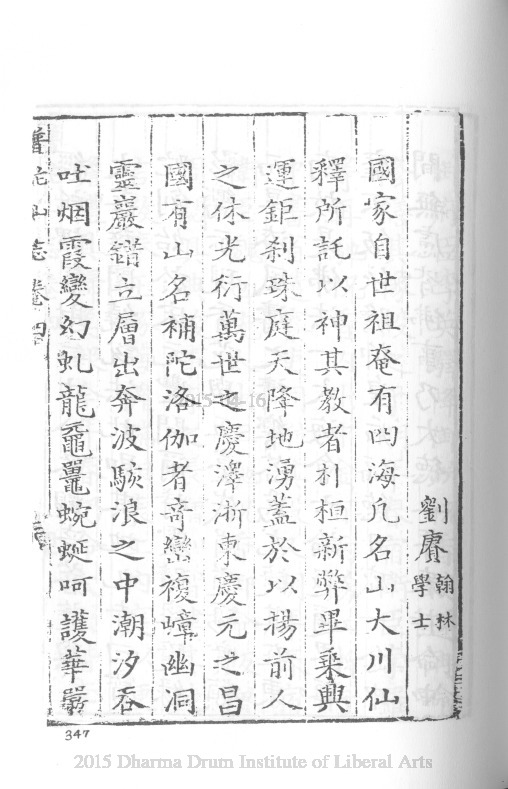 劉賡翰林學士
國家自世祖奄有四海凢名山大川仙
釋所託以神其教者朴桓新弊畢乘輿
運鉅剎珠庭天降地湧蓋於以揚前人
之休光衍萬世之慶澤浙東慶元之昌
國有山名補陀洛伽者竒巒複嶂幽洞
靈巖錯立層出奔波駭浪之中潮汐吞
吐烟霞變幻虬龍黿鼉蜿蜒呵護華嚴
普陀山志卷四
347
2015-04-16
2015 Dharma Drum Institute of Liberal Arts